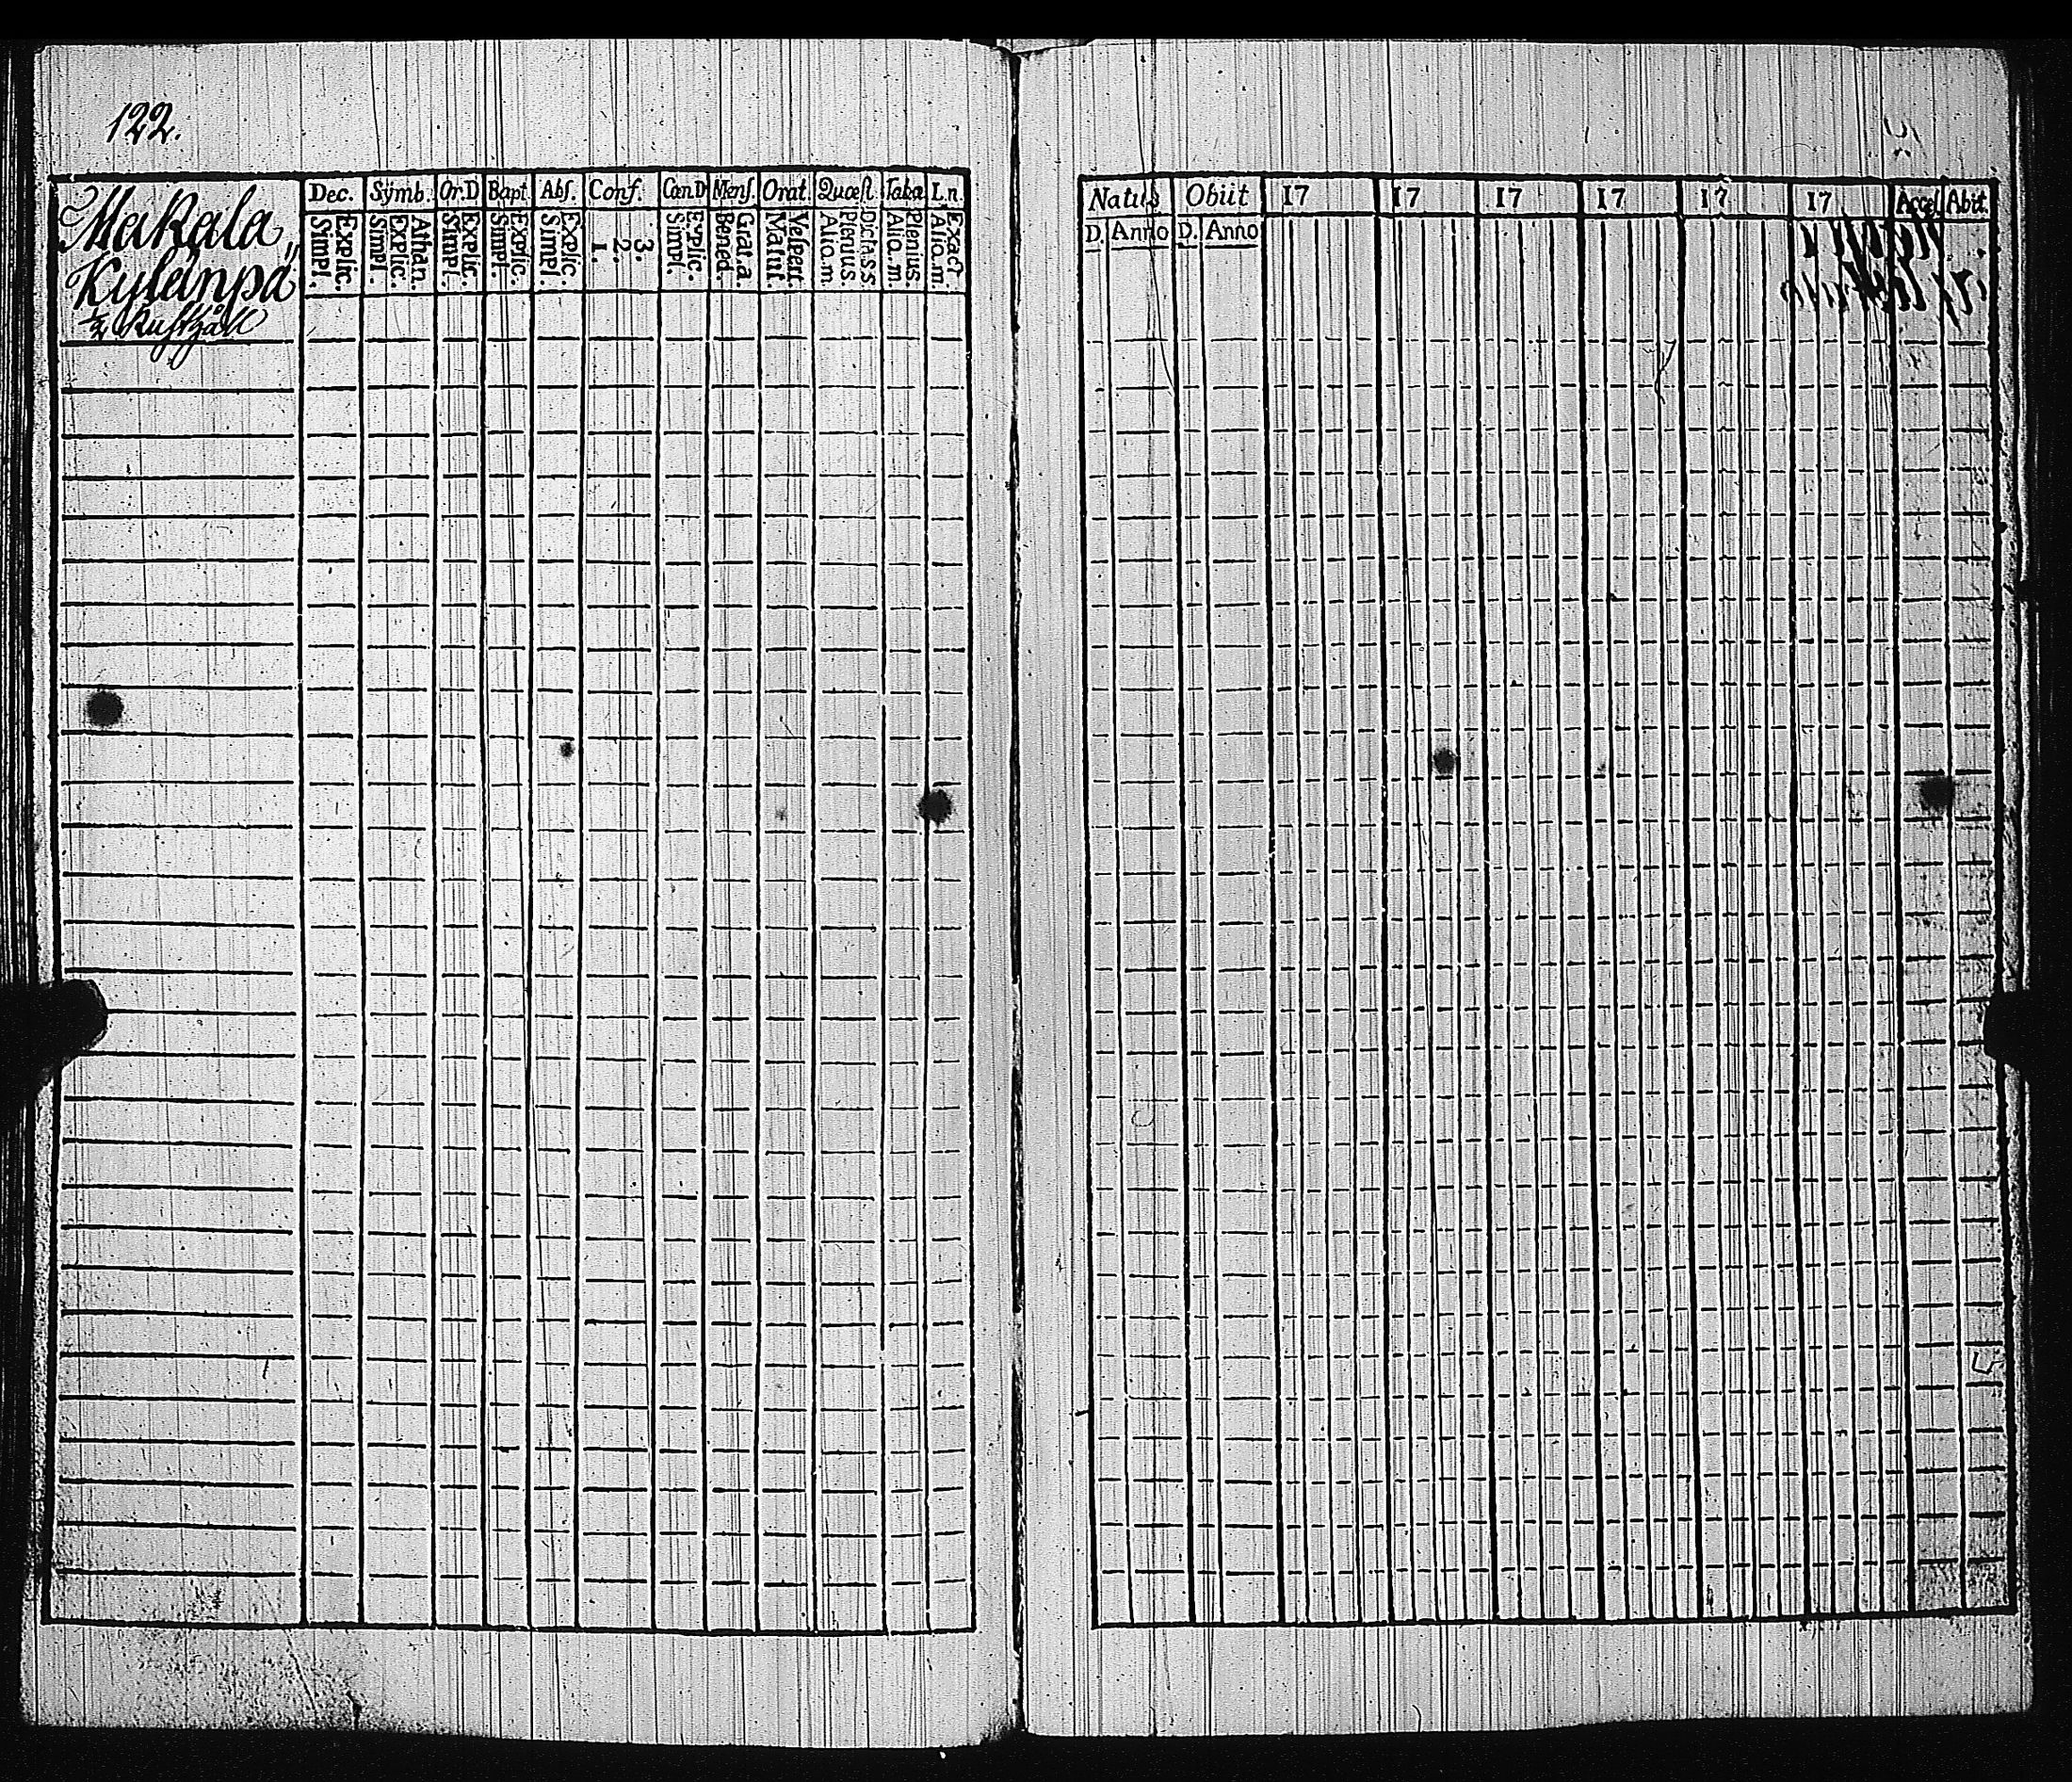 122.
Makala
Kylänpä
Rusthåll
Dec. Symb. Or.D Bapt. Abs. Conf. Cœn.D Mens. Orat. Quæst. Taba. L.n.
Explic. Simpl.
Athan. Explic. Simpl.
Explic. Simpl.
Explic. Simpl.
Explic. Simpl.
3. 2. 1.
Explic. Simpl.
Grat.a. Bened.
Vespert. Matut.
Dict.s.s. Plenius. Aliq.m.
Plenius. Aliq.m.
Exact. Aliq.m.
Natus Obiit 17 17 17 17 17 17 Acces. Abiit.
D. Anno D. Anno